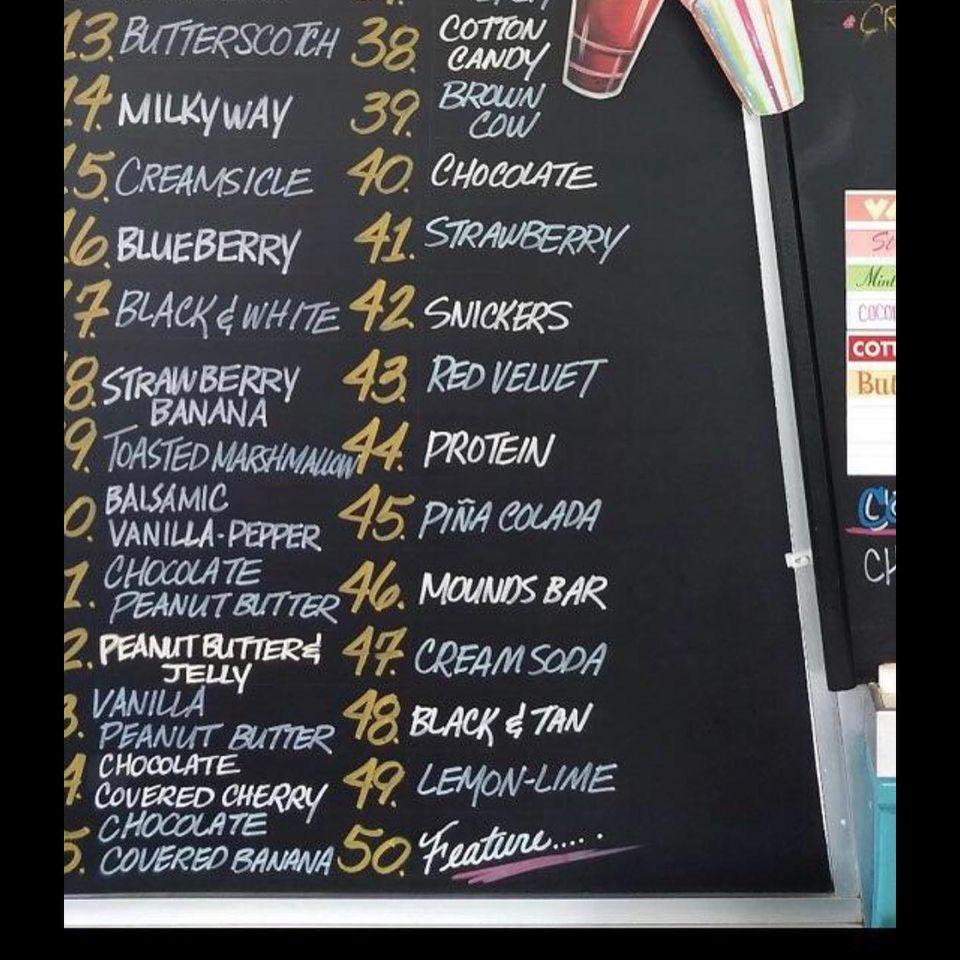 13. BUTTERSCOTCH
14. MILKYWAY
15. CREAMSICLE
16. BLUEBERRY
17. BLACK & WHITE
8. STRAWBERRY
BANANA
9. TOASTED MARSHMALLOW
0. BALSAMIC
VANILLA-PEPPER
1. CHOCOLATE
PEANUT BUTTER
2. PEANUT BUTTER &
JELLY
3. VANILLA
PEANUT BUTTER
4. CHOCOLATE
COVERED CHERRY
5. CHOCOLATE
COVERED BANANA
38. COTTON
CANDY
39. BROWN
COW
40. CHOCOLATE
41. STRAWBERRY
42. SNICKERS
43. RED VELVET
44. PROTEIN
45. PIÑA COLADA
46. MOUNDS BAR
47. CREAM SODA
48. BLACK & TAN
49. LEMON-LIME
50. Feature.....
CR
Va
St
Mint
COCO
COTT
But
CH